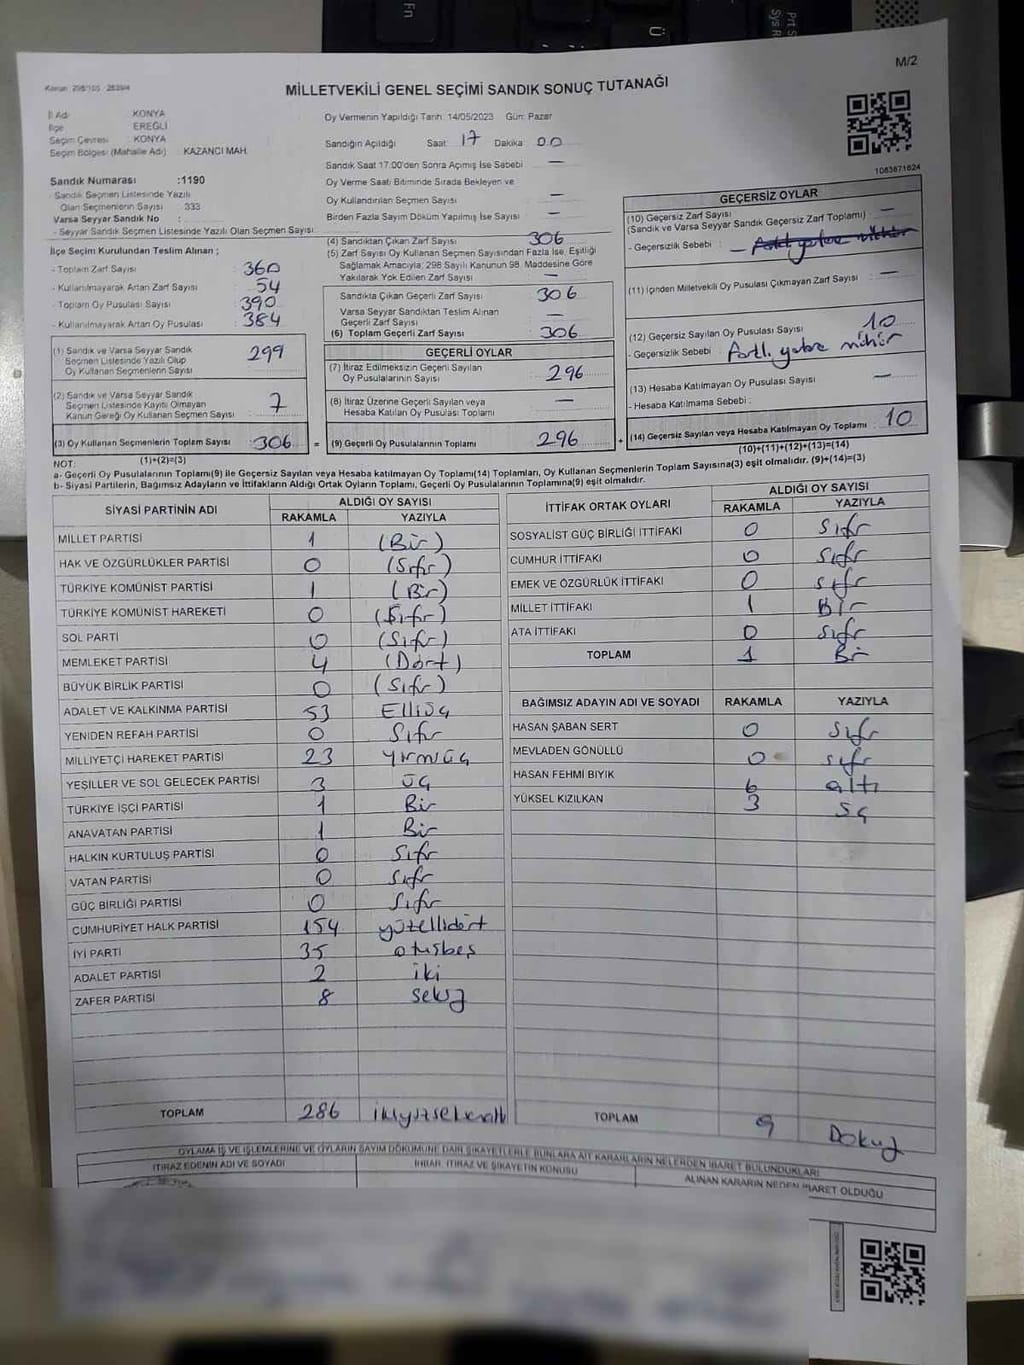 M/2
Kanun 298/105 283/4
MİLLETVEKİLİ GENEL SEÇİMİ SANDIK SONUÇ TUTANAĞI
İl Adı KONYA
İlçe EREĞLİ
Seçim Çevresi KONYA
Seçim Bölgesi (Mahalle Adı) : KAZANCI MAH.
Sandık Numarası :1190
- Sandık Seçmen Listesinde Yazılı
Olan Seçmenlerin Sayısı : 333
Varsa Seyyar Sandık No :
- Seyyar Sandık Seçmen Listesinde Yazılı Olan Seçmen Sayısı :
İlçe Seçim Kurulundan Teslim Alınan ;
- Toplam Zarf Sayısı : 360
- Kullanılmayarak Artan Zarf Sayısı : 54
- Toplam Oy Pusulası Sayısı : 390
- Kullanılmayarak Artan Oy Pusulası : 384
(1) Sandık ve Varsa Seyyar Sandık
Seçmen Listesinde Yazılı Olup
Oy Kullanan Seçmenlerin Sayısı : 299
(2) Sandık ve Varsa Seyyar Sandık
Seçmen Listesinde Kayıtlı Olmayan
Kanun Gereği Oy Kullanan Seçmen Sayısı : 7
(3) Oy Kullanan Seçmenlerin Toplam Sayısı : 306
(1)+(2)=(3)
Oy Vermenin Yapıldığı Tarih: 14/05/2023 Gün: Pazar
Sandığın Açıldığı Saat: 17 Dakika 00
Sandık Saat 17:00'den Sonra Açılmış İse Sebebi : —
Oy Verme Saati Bitiminde Sırada Bekleyen ve
Oy Kullandırılan Seçmen Sayısı : —
Birden Fazla Sayım Döküm Yapılmış İse Sayısı : —
(4) Sandıktan Çıkan Zarf Sayısı : 306
(5) Zarf Sayısı Oy Kullanan Seçmen Sayısından Fazla İse, Eşitliği
Sağlamak Amacıyla; 298 Sayılı Kanunun 98. Maddesine Göre
Yakılarak Yok Edilen Zarf Sayısı : —
Sandıkta Çıkan Geçerli Zarf Sayısı : 306
Varsa Seyyar Sandıktan Teslim Alınan
Geçerli Zarf Sayısı : —
(6) Toplam Geçerli Zarf Sayısı : 306
GEÇERLİ OYLAR
(7) İtiraz Edilmeksizin Geçerli Sayılan
Oy Pusulalarının Sayısı : 296
(8) İtiraz Üzerine Geçerli Sayılan veya
Hesaba Katılan Oy Pusulası Toplamı : —
= (9) Geçerli Oy Pusulalarının Toplamı : 296
1083871624
GEÇERSİZ OYLAR
(10) Geçersiz Zarf Sayısı
(Sandık ve Varsa Seyyar Sandık Geçersiz Zarf Toplamı) : —
- Geçersizlik Sebebi : —
(11) İçinden Milletvekili Oy Pusulası Çıkmayan Zarf Sayısı : —
(12) Geçersiz Sayılan Oy Pusulası Sayısı : 10
- Geçersizlik Sebebi : mühür
(13) Hesaba Katılmayan Oy Pusulası Sayısı : —
- Hesaba Katılmama Sebebi :
+ (14) Geçersiz Sayılan veya Hesaba Katılmayan Oy Toplamı : 10
(10)+(11)+(12)+(13)=(14)
NOT:
a- Geçerli Oy Pusulalarının Toplamı(9) ile Geçersiz Sayılan veya Hesaba katılmayan Oy Toplamı(14) Toplamları, Oy Kullanan Seçmenlerin Toplam Sayısına(3) eşit olmalıdır. (9)+(14)=(3)
b- Siyasi Partilerin, Bağımsız Adayların ve İttifakların Aldığı Ortak Oyların Toplamı, Geçerli Oy Pusulalarının Toplamına(9) eşit olmalıdır.
SİYASİ PARTİNİN ADI ALDIĞI OY SAYISI
RAKAMLA YAZIYLA
MİLLET PARTİSİ 1 (Bir)
HAK VE ÖZGÜRLÜKLER PARTİSİ 0 (Sıfır)
TÜRKİYE KOMÜNİST PARTİSİ 1 (Bir)
TÜRKİYE KOMÜNİST HAREKETİ 0 (Sıfır)
SOL PARTİ 0 (Sıfır)
MEMLEKET PARTİSİ 4 (Dört)
BÜYÜK BİRLİK PARTİSİ 0 (Sıfır)
ADALET VE KALKINMA PARTİSİ 53 Elliüç
YENİDEN REFAH PARTİSİ 0 Sıfır
MİLLİYETÇİ HAREKET PARTİSİ 23 yirmiüç
YEŞİLLER VE SOL GELECEK PARTİSİ 3 üç
TÜRKİYE İŞÇİ PARTİSİ 1 Bir
ANAVATAN PARTİSİ 1 Bir
HALKIN KURTULUŞ PARTİSİ 0 Sıfır
VATAN PARTİSİ 0 Sıfır
GÜÇ BİRLİĞİ PARTİSİ 0 Sıfır
CUMHURİYET HALK PARTİSİ 154 yüzellidört
İYİ PARTİ 35 otuzbeş
ADALET PARTİSİ 2 iki
ZAFER PARTİSİ 8 sekiz
TOPLAM 286 ikiyüzseksenaltı
İTTİFAK ORTAK OYLARI ALDIĞI OY SAYISI
RAKAMLA YAZIYLA
SOSYALİST GÜÇ BİRLİĞİ İTTİFAKI 0 Sıfır
CUMHUR İTTİFAKI 0 Sıfır
EMEK VE ÖZGÜRLÜK İTTİFAKI 0 sıfır
MİLLET İTTİFAKI 1 Bir
ATA İTTİFAKI 0 sıfır
TOPLAM 1 Bir
BAĞIMSIZ ADAYIN ADI VE SOYADI RAKAMLA YAZIYLA
HASAN ŞABAN SERT 0 Sıfır
MEVLADEN GÖNÜLLÜ 0 sıfır
HASAN FEHMİ BIYIK 6 altı
YÜKSEL KIZILKAN 3 üç
TOPLAM 9 Dokuz
OYLAMA İŞ VE İŞLEMLERİNE VE OYLARIN SAYIM DÖKÜMÜNE DAİR ŞİKAYETLERLE BUNLARA AİT KARARLARIN NELERDEN İBARET BULUNDUKLARI
İTİRAZ EDENİN ADI VE SOYADI İHBAR, İTİRAZ VE ŞİKAYETİN KONUSU ALINAN KARARIN NEDEN İBARET OLDUĞU